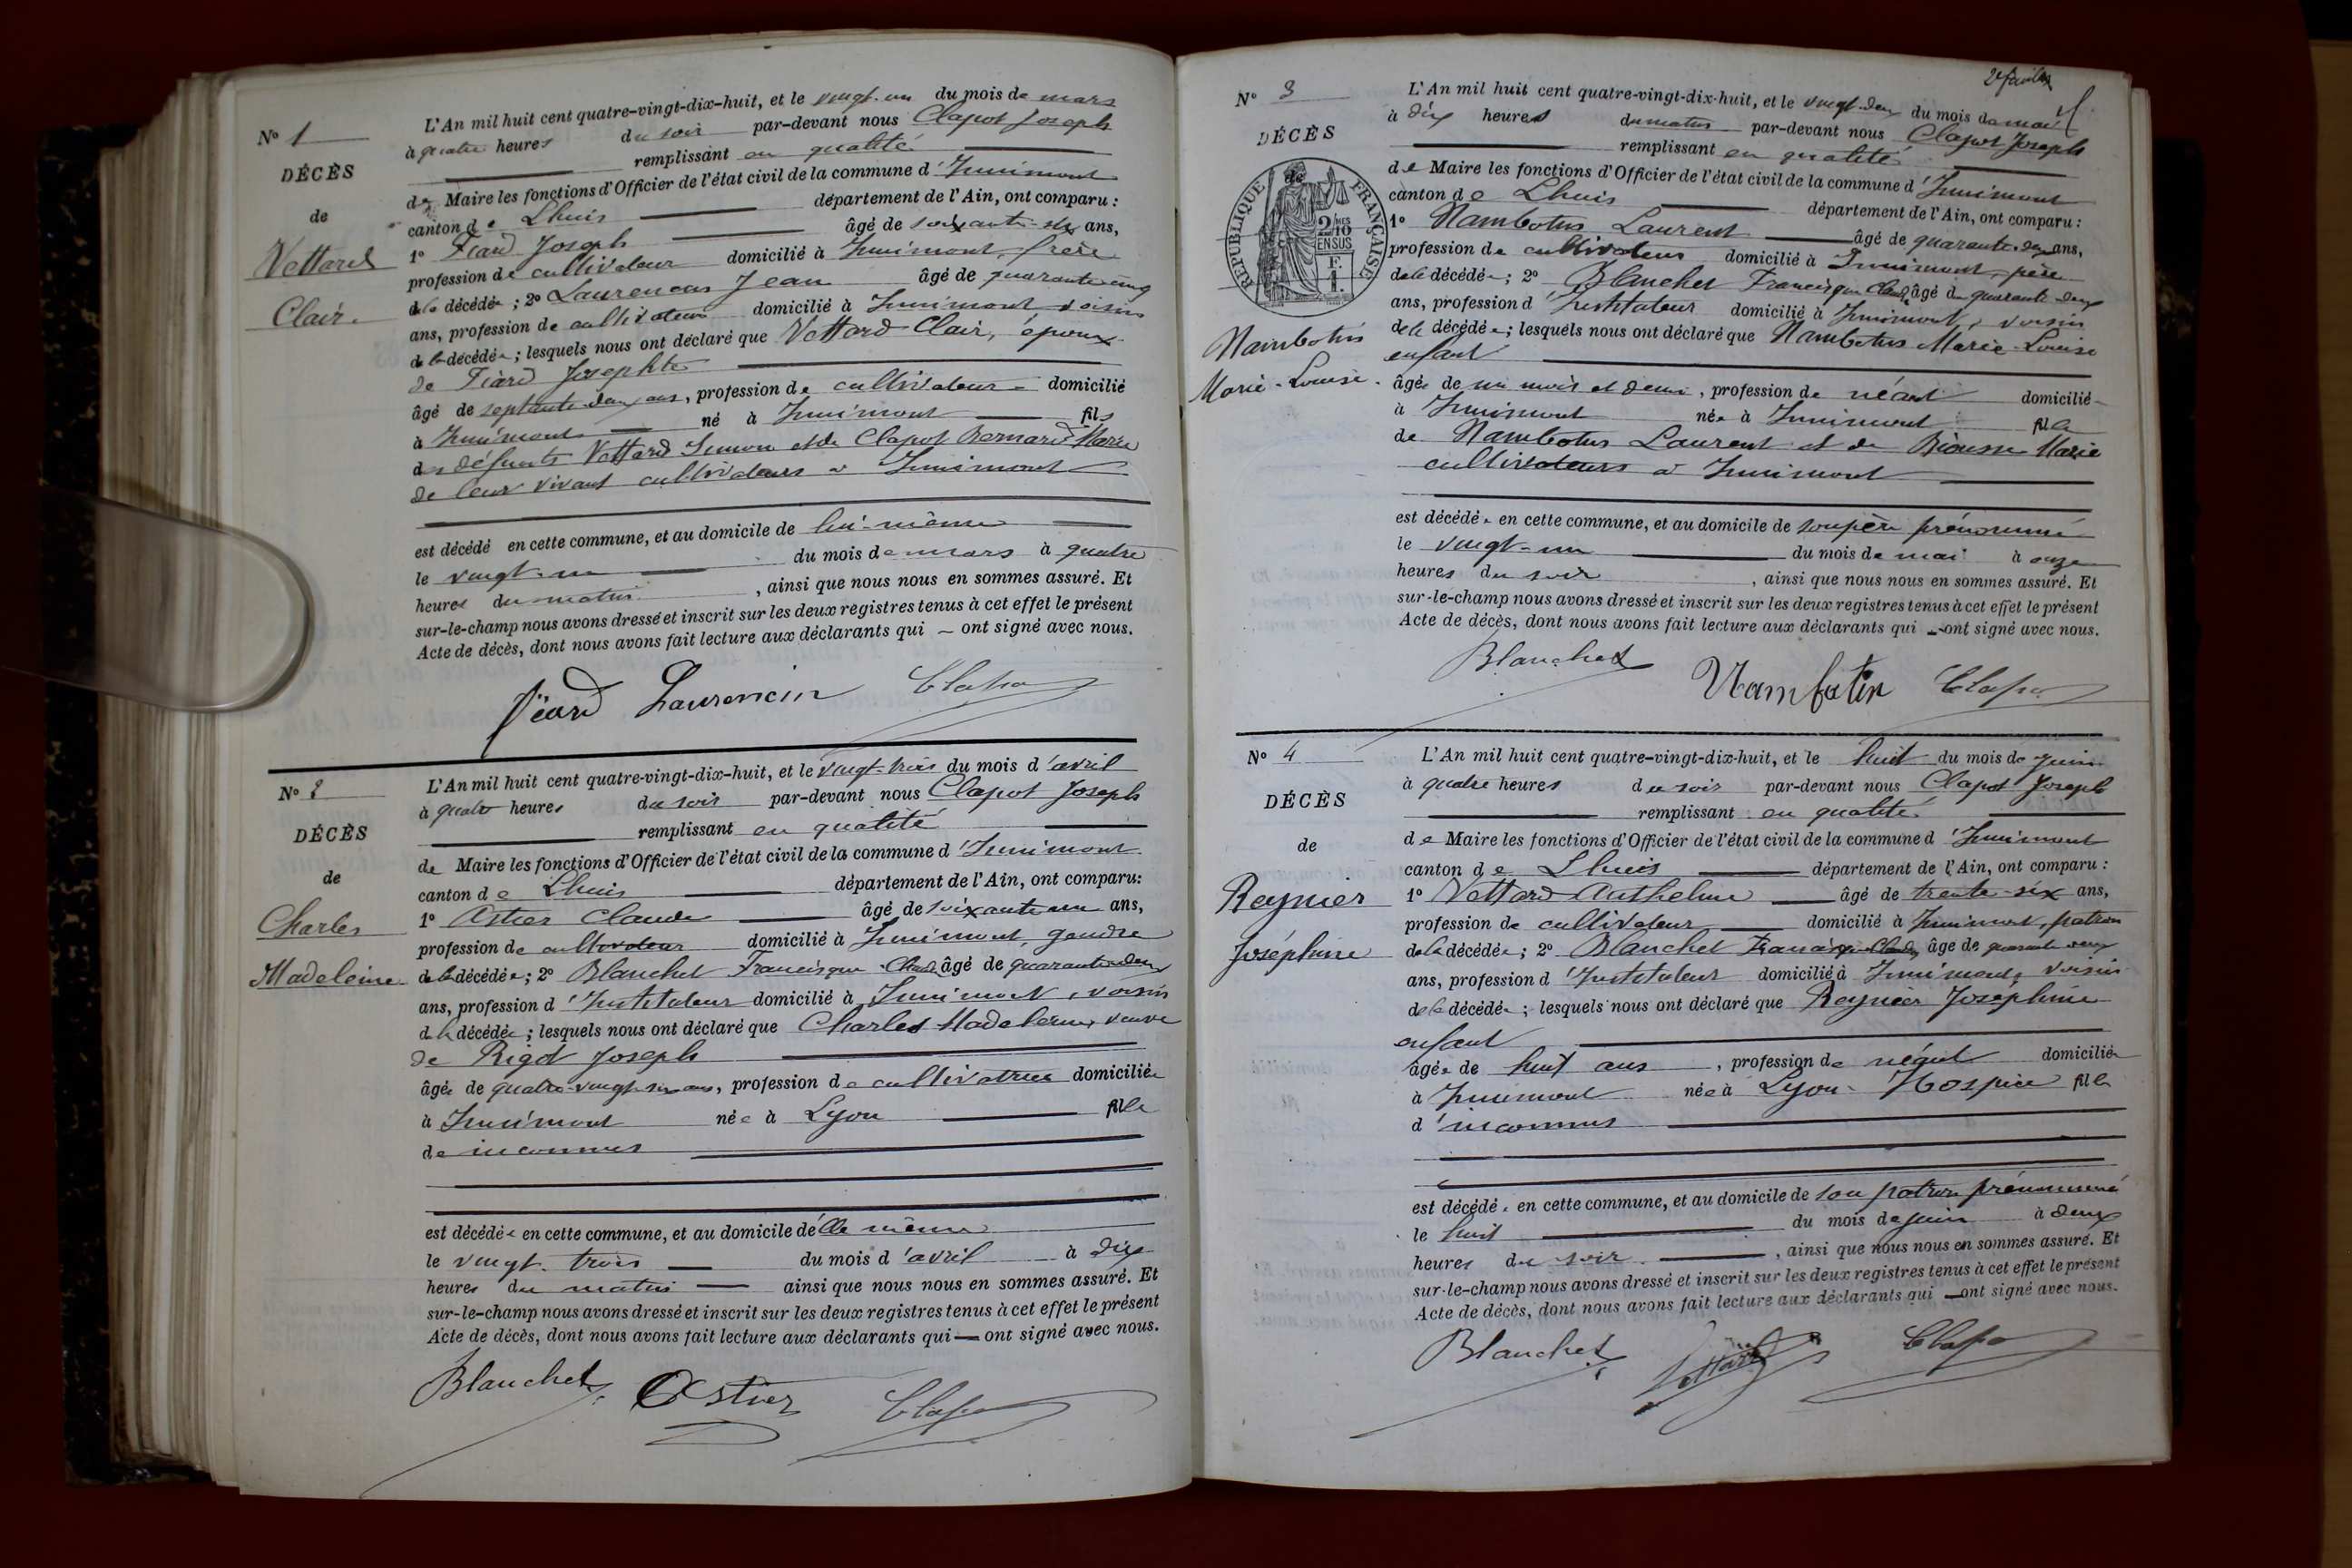 N° 1
DÉCÈS
de
Vettard
Clair.
L'An mil huit cent quatre-vingt-dix-huit, et le vingt-un du mois de mars
à quatre heures du soir par-devant nous Clapot Joseph
remplissant en qualité
de Maire les fonctions d'Officier de l'état civil de la commune d'Innimont
canton de Lhuis département de l'Ain, ont comparu :
1° Fiard Joseph âgé de soixante-six ans,
profession de cultivateur domicilié à Innimont, frère
de la décédée ; 2° Laurencin Jean âgé de quarante cinq
ans, profession de cultivateur domicilié à Innimont voisin
de la décédée ; lesquels nous ont déclaré que Vettard Clair, époux
de Fiard Josephte
âgé de septante-deux ans, profession de cultivateur domicilié
à Innimont né à Innimont fils
des défunts Vettard Simon et de Clapot Bernard Marie
de leur vivant cultivateurs à Innimont
est décédé en cette commune, et au domicile de lui-même
le vingt-un du mois de mars à quatre
heures du matin, ainsi que nous nous en sommes assuré. Et
sur-le-champ nous avons dressé et inscrit sur les deux registres tenus à cet effet le présent
Acte de décès, dont nous avons fait lecture aux déclarants qui – ont signé avec nous.
Fiard Laurencin Clapo
N° 2
DÉCÈS
de
Charles
Madeleine
L'An mil huit cent quatre-vingt-dix-huit, et le vingt-trois du mois d'avril
à quatre heures du soir par-devant nous Clapot Joseph
remplissant en qualité
de Maire les fonctions d'Officier de l'état civil de la commune d'Innimont
canton de Lhuis département de l'Ain, ont comparu :
1° Astier Claude âgé de soixante un ans,
profession de cultivateur domicilié à Innimont gendre
de la décédée ; 2° Blanchet Francisque Claude âgé de quarante-deux
ans, profession d'Instituteur domicilié à Innimont, voisin
de la décédée ; lesquels nous ont déclaré que Charles Madeleine, veuve
de Rigot Joseph
âgée de quatre-vingt-six ans, profession de cultivatrice domiciliée
à Innimont née à Lyon fille
de inconnus
est décédée en cette commune, et au domicile d'elle même
le vingt-trois du mois d'avril à dix
heures du matin ainsi que nous nous en sommes assuré. Et
sur-le-champ nous avons dressé et inscrit sur les deux registres tenus à cet effet le présent
Acte de décès, dont nous avons fait lecture aux déclarants qui — ont signé avec nous.
Blanchet Astier Clapo
2e feuillet
N° 3
DÉCÈS
de
RÉPUBLIQUE FRANÇAISE
2/10 MES
EN SUS
F.
1.
Nambotin
Marie-Louise.
L'An mil huit cent quatre-vingt-dix-huit, et le vingt-deux du mois de mai
à dix heures du matin par-devant nous Clapot Joseph
remplissant en qualité
de Maire les fonctions d'Officier de l'état civil de la commune d'Innimont
canton de Lhuis département de l'Ain, ont comparu :
1° Nambotin Laurent âgé de quarante-deux ans,
profession de cultivateur domicilié à Innimont, père
de la décédée ; 2° Blanchet Francisque Claude âgé de quarante-deux
ans, profession d'Instituteur domicilié à Innimont, voisin
de la décédée ; lesquels nous ont déclaré que Nambotin Marie-Louise
enfant
âgée de un mois et demi, profession de néant domiciliée
à Innimont née à Innimont fille
de Nambotin Laurent et de Biousse Marie
cultivateurs à Innimont
est décédée en cette commune, et au domicile de son père prénommé
le vingt-un du mois de mai à onze
heures du soir, ainsi que nous nous en sommes assuré. Et
sur-le-champ nous avons dressé et inscrit sur les deux registres tenus à cet effet le présent
Acte de décès, dont nous avons fait lecture aux déclarants qui — ont signé avec nous.
Blanchet Nambotin Clapo
N° 4
DÉCÈS
de
Reynier
Joséphine
L'An mil huit cent quatre-vingt-dix-huit, et le huit du mois de juin
à quatre heures du soir par-devant nous Clapot Joseph
remplissant en qualité
de Maire les fonctions d'Officier de l'état civil de la commune d'Innimont
canton de Lhuis département de l'Ain, ont comparu :
1° Vettard Anthelme âgé de trente-six ans,
profession de cultivateur domicilié à Innimont, patron
de la décédée ; 2° Blanchet Francisque Claude, âge de quarante deux
ans, profession d'Instituteur domicilié à Innimont, voisin
de la décédée ; lesquels nous ont déclaré que Reynier Joséphine
enfant
âgée de huit ans, profession de néant domiciliée
à Innimont née à Lyon-Hospice fille
d'inconnus
est décédée en cette commune, et au domicile de son patron prénommé
le huit du mois de juin à deux
heures du soir, ainsi que nous nous en sommes assuré. Et
sur-le-champ nous avons dressé et inscrit sur les deux registres tenus à cet effet le présent
Acte de décès, dont nous avons fait lecture aux déclarants qui — ont signé avec nous.
Blanchet Vettard Clapo